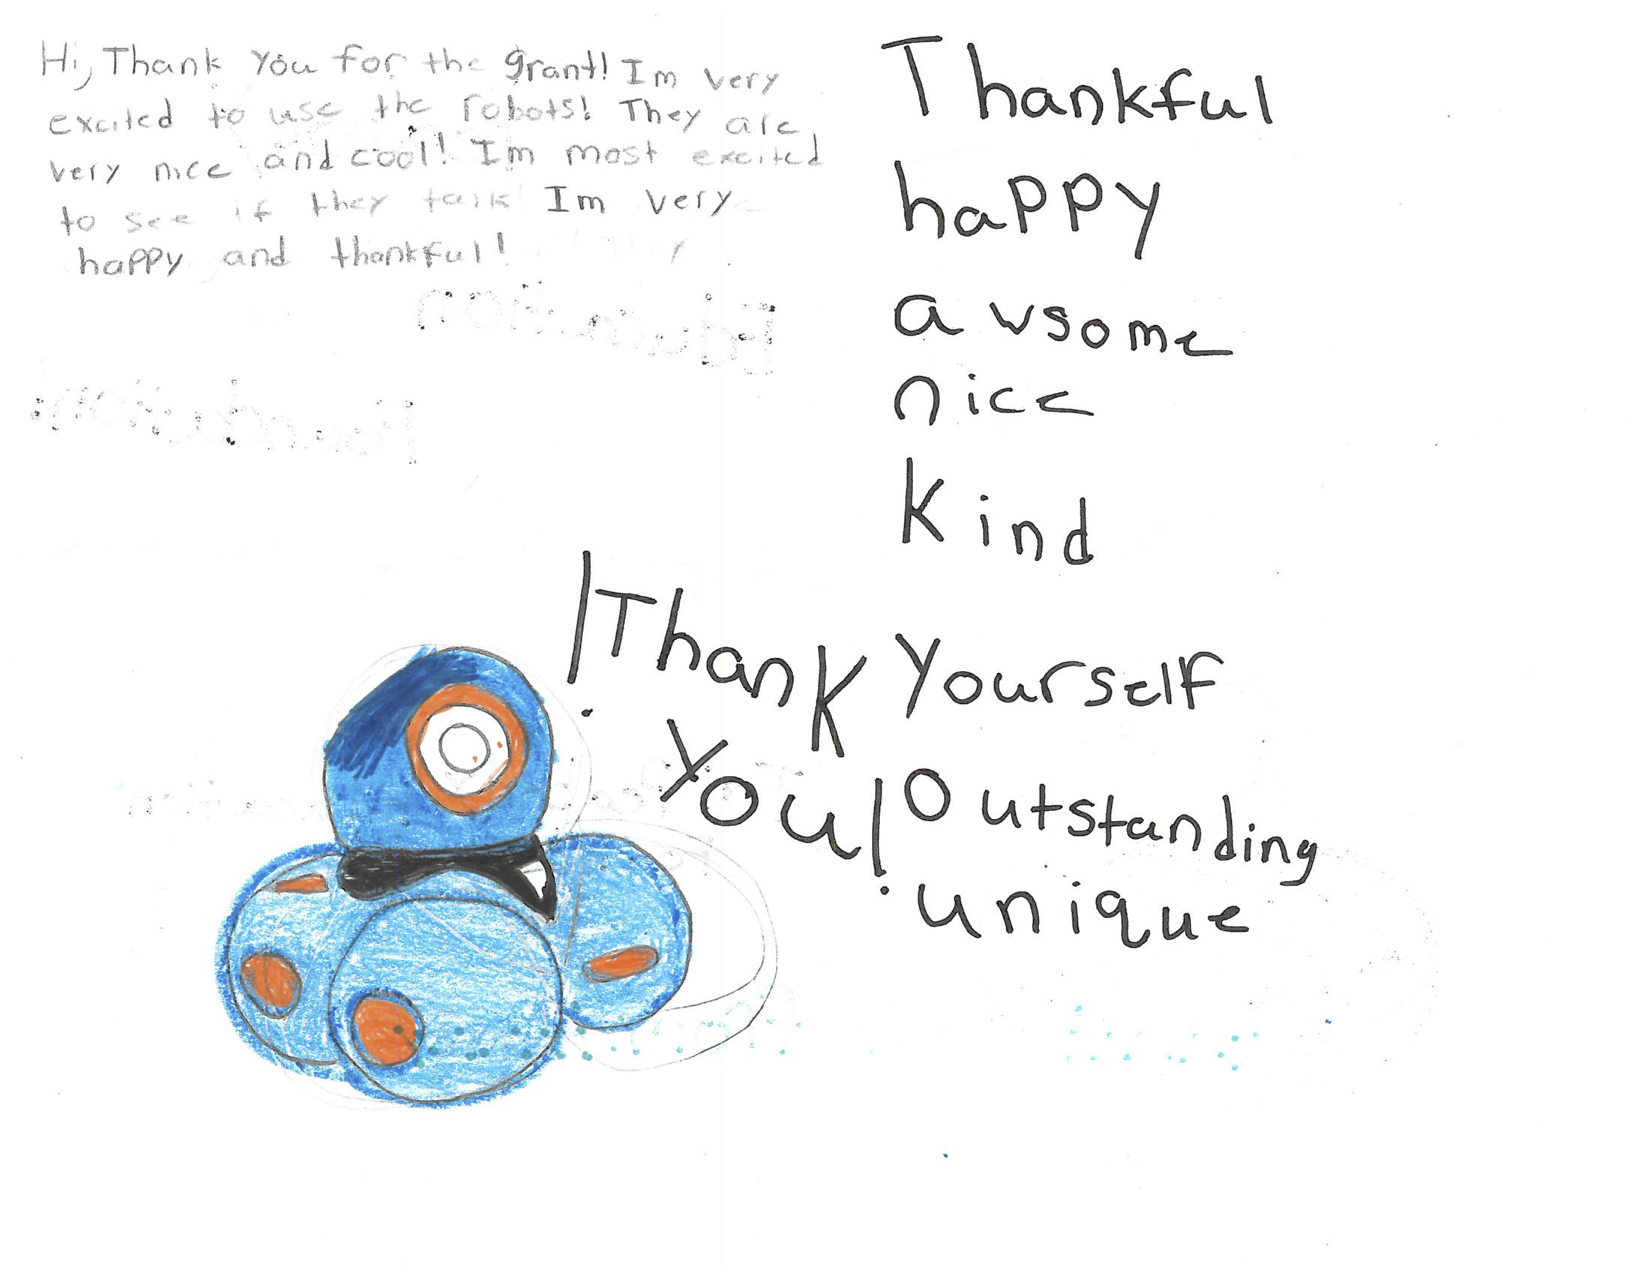 Hi, Thank You for the grant! Im very
excited to use the robots! They are
very nice and cool! Im most excited
to see if they talk! Im very
happy and thankful!
Education
Foundation
!Thank
You!
Thankful
happy
awsome
nice
Kind
Yourself
Outstanding
unique